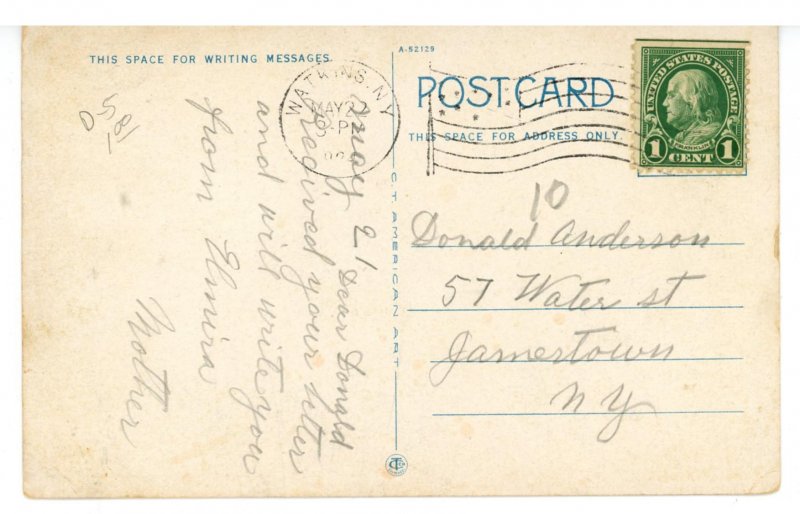 THIS SPACE FOR WRITING MESSAGES.
A-52129
POST CARD
THIS SPACE FOR ADDRESS ONLY.
WATKINS, N.Y.
MAY 22
PM
UNITED STATES POSTAGE
FRANKLIN
1 CENT 1
D-5
1.00
May 21
Dear Donald
Recived your letter
and will write you
from Elmira
Mother
C.T. AMERICAN ART
10
Donald Anderson
57 Water st
Jamertown
NY